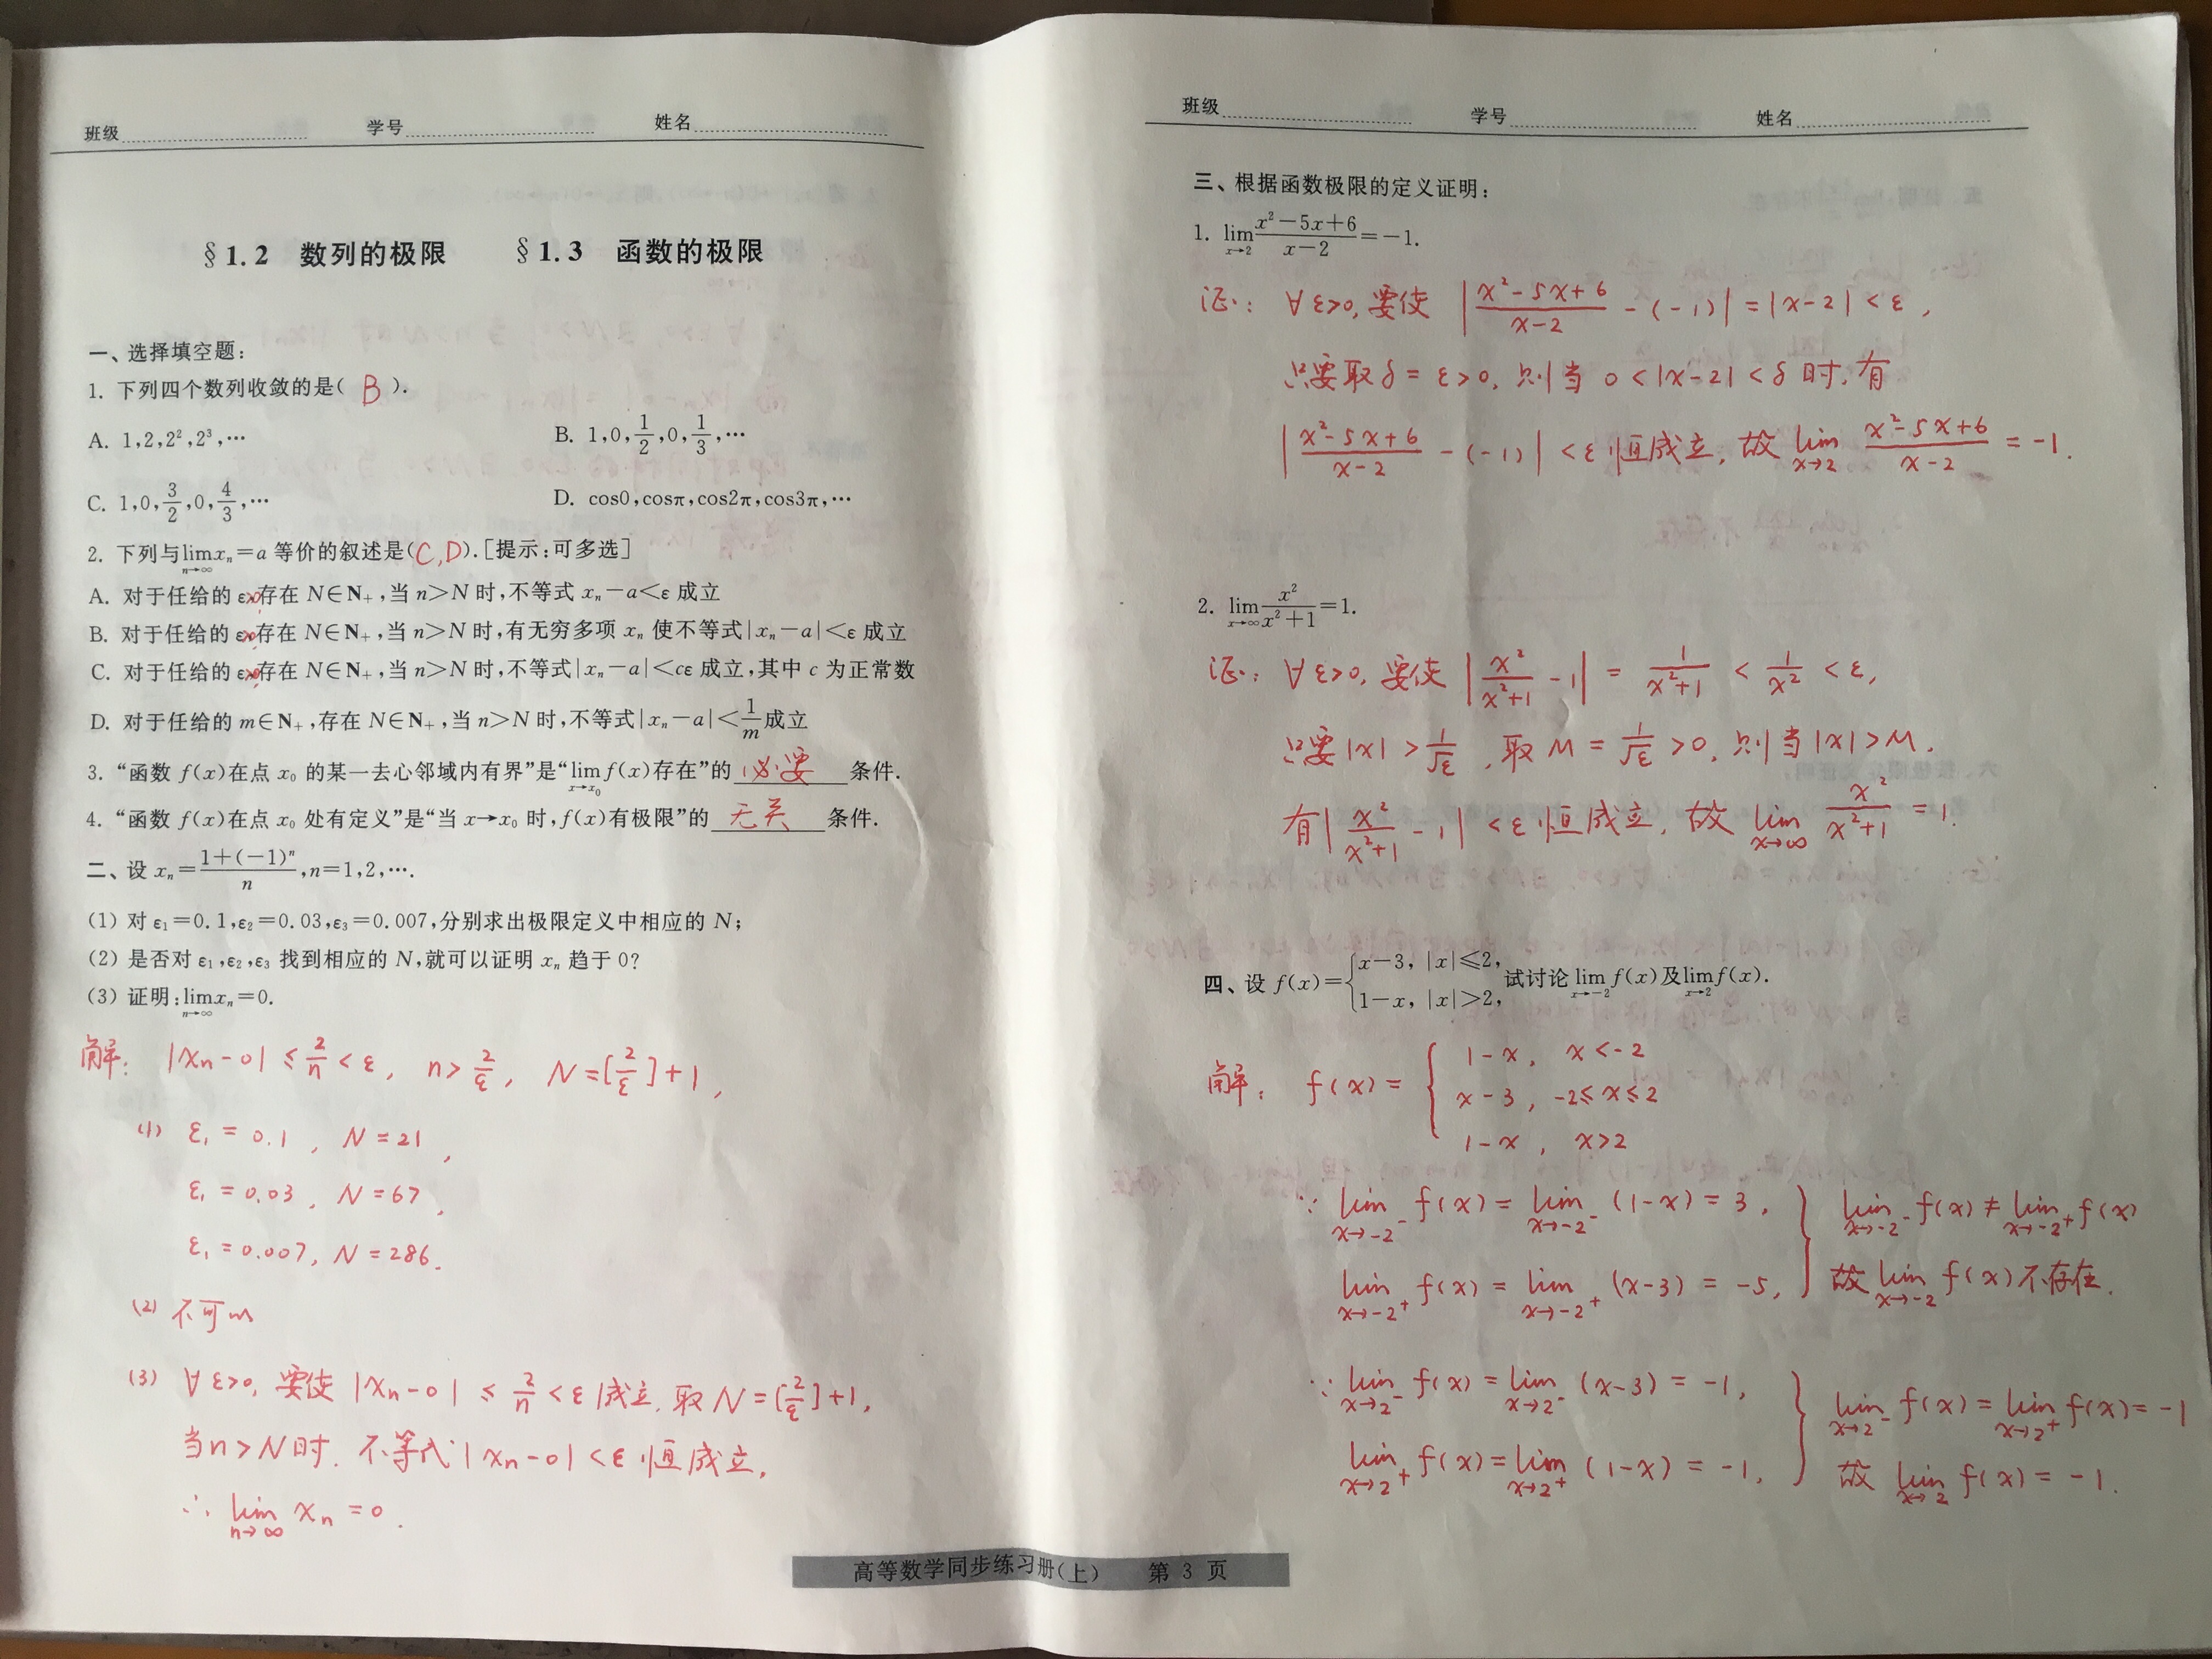 班级 学号 姓名
§1.2 数列的极限 §1.3 函数的极限
一、选择填空题:
1. 下列四个数列收敛的是( B ).
A. 1,2,2²,2³,⋯ B. 1,0,1/2,0,1/3,⋯
C. 1,0,3/2,0,4/3,⋯ D. cos0,cosπ,cos2π,cos3π,⋯
2. 下列与lim(n→∞) xₙ=a 等价的叙述是(C,D).[提示:可多选]
A. 对于任给的 ε>0,存在 N∈N₊,当 n>N 时,不等式 xₙ-a<ε 成立
B. 对于任给的 ε>0,存在 N∈N₊,当 n>N 时,有无穷多项 xₙ 使不等式|xₙ-a|<ε 成立
C. 对于任给的 ε>0,存在 N∈N₊,当 n>N 时,不等式|xₙ-a|<cε 成立,其中 c 为正常数
D. 对于任给的 m∈N₊,存在 N∈N₊,当 n>N 时,不等式|xₙ-a|<1/m 成立
3. “函数 f(x)在点 x₀ 的某一去心邻域内有界”是“lim(x→x₀) f(x)存在”的 必要 条件.
4. “函数 f(x)在点 x₀ 处有定义”是“当 x→x₀ 时,f(x)有极限”的 无关 条件.
二、设 xₙ=(1+(-1)ⁿ)/n,n=1,2,⋯.
(1) 对 ε₁=0.1,ε₂=0.03,ε₃=0.007,分别求出极限定义中相应的 N;
(2) 是否对 ε₁,ε₂,ε₃ 找到相应的 N,就可以证明 xₙ 趋于 0?
(3) 证明:lim(n→∞) xₙ=0.
解: |xₙ-0| ≤ 2/n < ε, n > 2/ε, N=[2/ε]+1,
(1) ε₁ = 0.1, N=21,
ε₁ = 0.03, N=67,
ε₁ = 0.007, N=286.
(2) 不可以
(3) ∀ε>0, 要使 |xₙ-0| ≤ 2/n < ε 成立, 取 N=[2/ε]+1,
当n>N时, 不等式 |xₙ-0| < ε 恒成立,
∴ lim(n→∞) xₙ = 0.
班级 学号 姓名
三、根据函数极限的定义证明:
1. lim(x→2) (x²-5x+6)/(x-2)=-1.
证: ∀ε>0, 要使 |(x²-5x+6)/(x-2) - (-1)| = |x-2| < ε,
只要取δ = ε>0, 则当 0<|x-2|<δ 时, 有
|(x²-5x+6)/(x-2) - (-1)| < ε 恒成立, 故 lim(x→2) (x²-5x+6)/(x-2) = -1.
2. lim(x→∞) x²/(x²+1)=1.
证: ∀ε>0, 要使 |x²/(x²+1) - 1| = 1/(x²+1) < 1/x² < ε,
只要 |x| > 1/√ε, 取 M = 1/√ε > 0, 则当 |x|>M,
有|x²/(x²+1) - 1| < ε 恒成立, 故 lim(x→∞) x²/(x²+1) = 1.
四、设 f(x)={x-3, |x|≤2, 1-x, |x|>2, 试讨论 lim(x→-2) f(x)及lim(x→2) f(x).
解: f(x) = { 1-x, x<-2
x-3, -2≤x≤2
1-x, x>2
∵ lim(x→-2⁻) f(x) = lim(x→-2⁻) (1-x) = 3, } lim(x→-2⁻) f(x) ≠ lim(x→-2⁺) f(x)
lim(x→-2⁺) f(x) = lim(x→-2⁺) (x-3) = -5, 故 lim(x→-2) f(x) 不存在.
∵ lim(x→2⁻) f(x) = lim(x→2⁻) (x-3) = -1, } lim(x→2⁻) f(x) = lim(x→2⁺) f(x) = -1
lim(x→2⁺) f(x) = lim(x→2⁺) (1-x) = -1, 故 lim(x→2) f(x) = -1.
高等数学同步练习册(上) 第 3 页